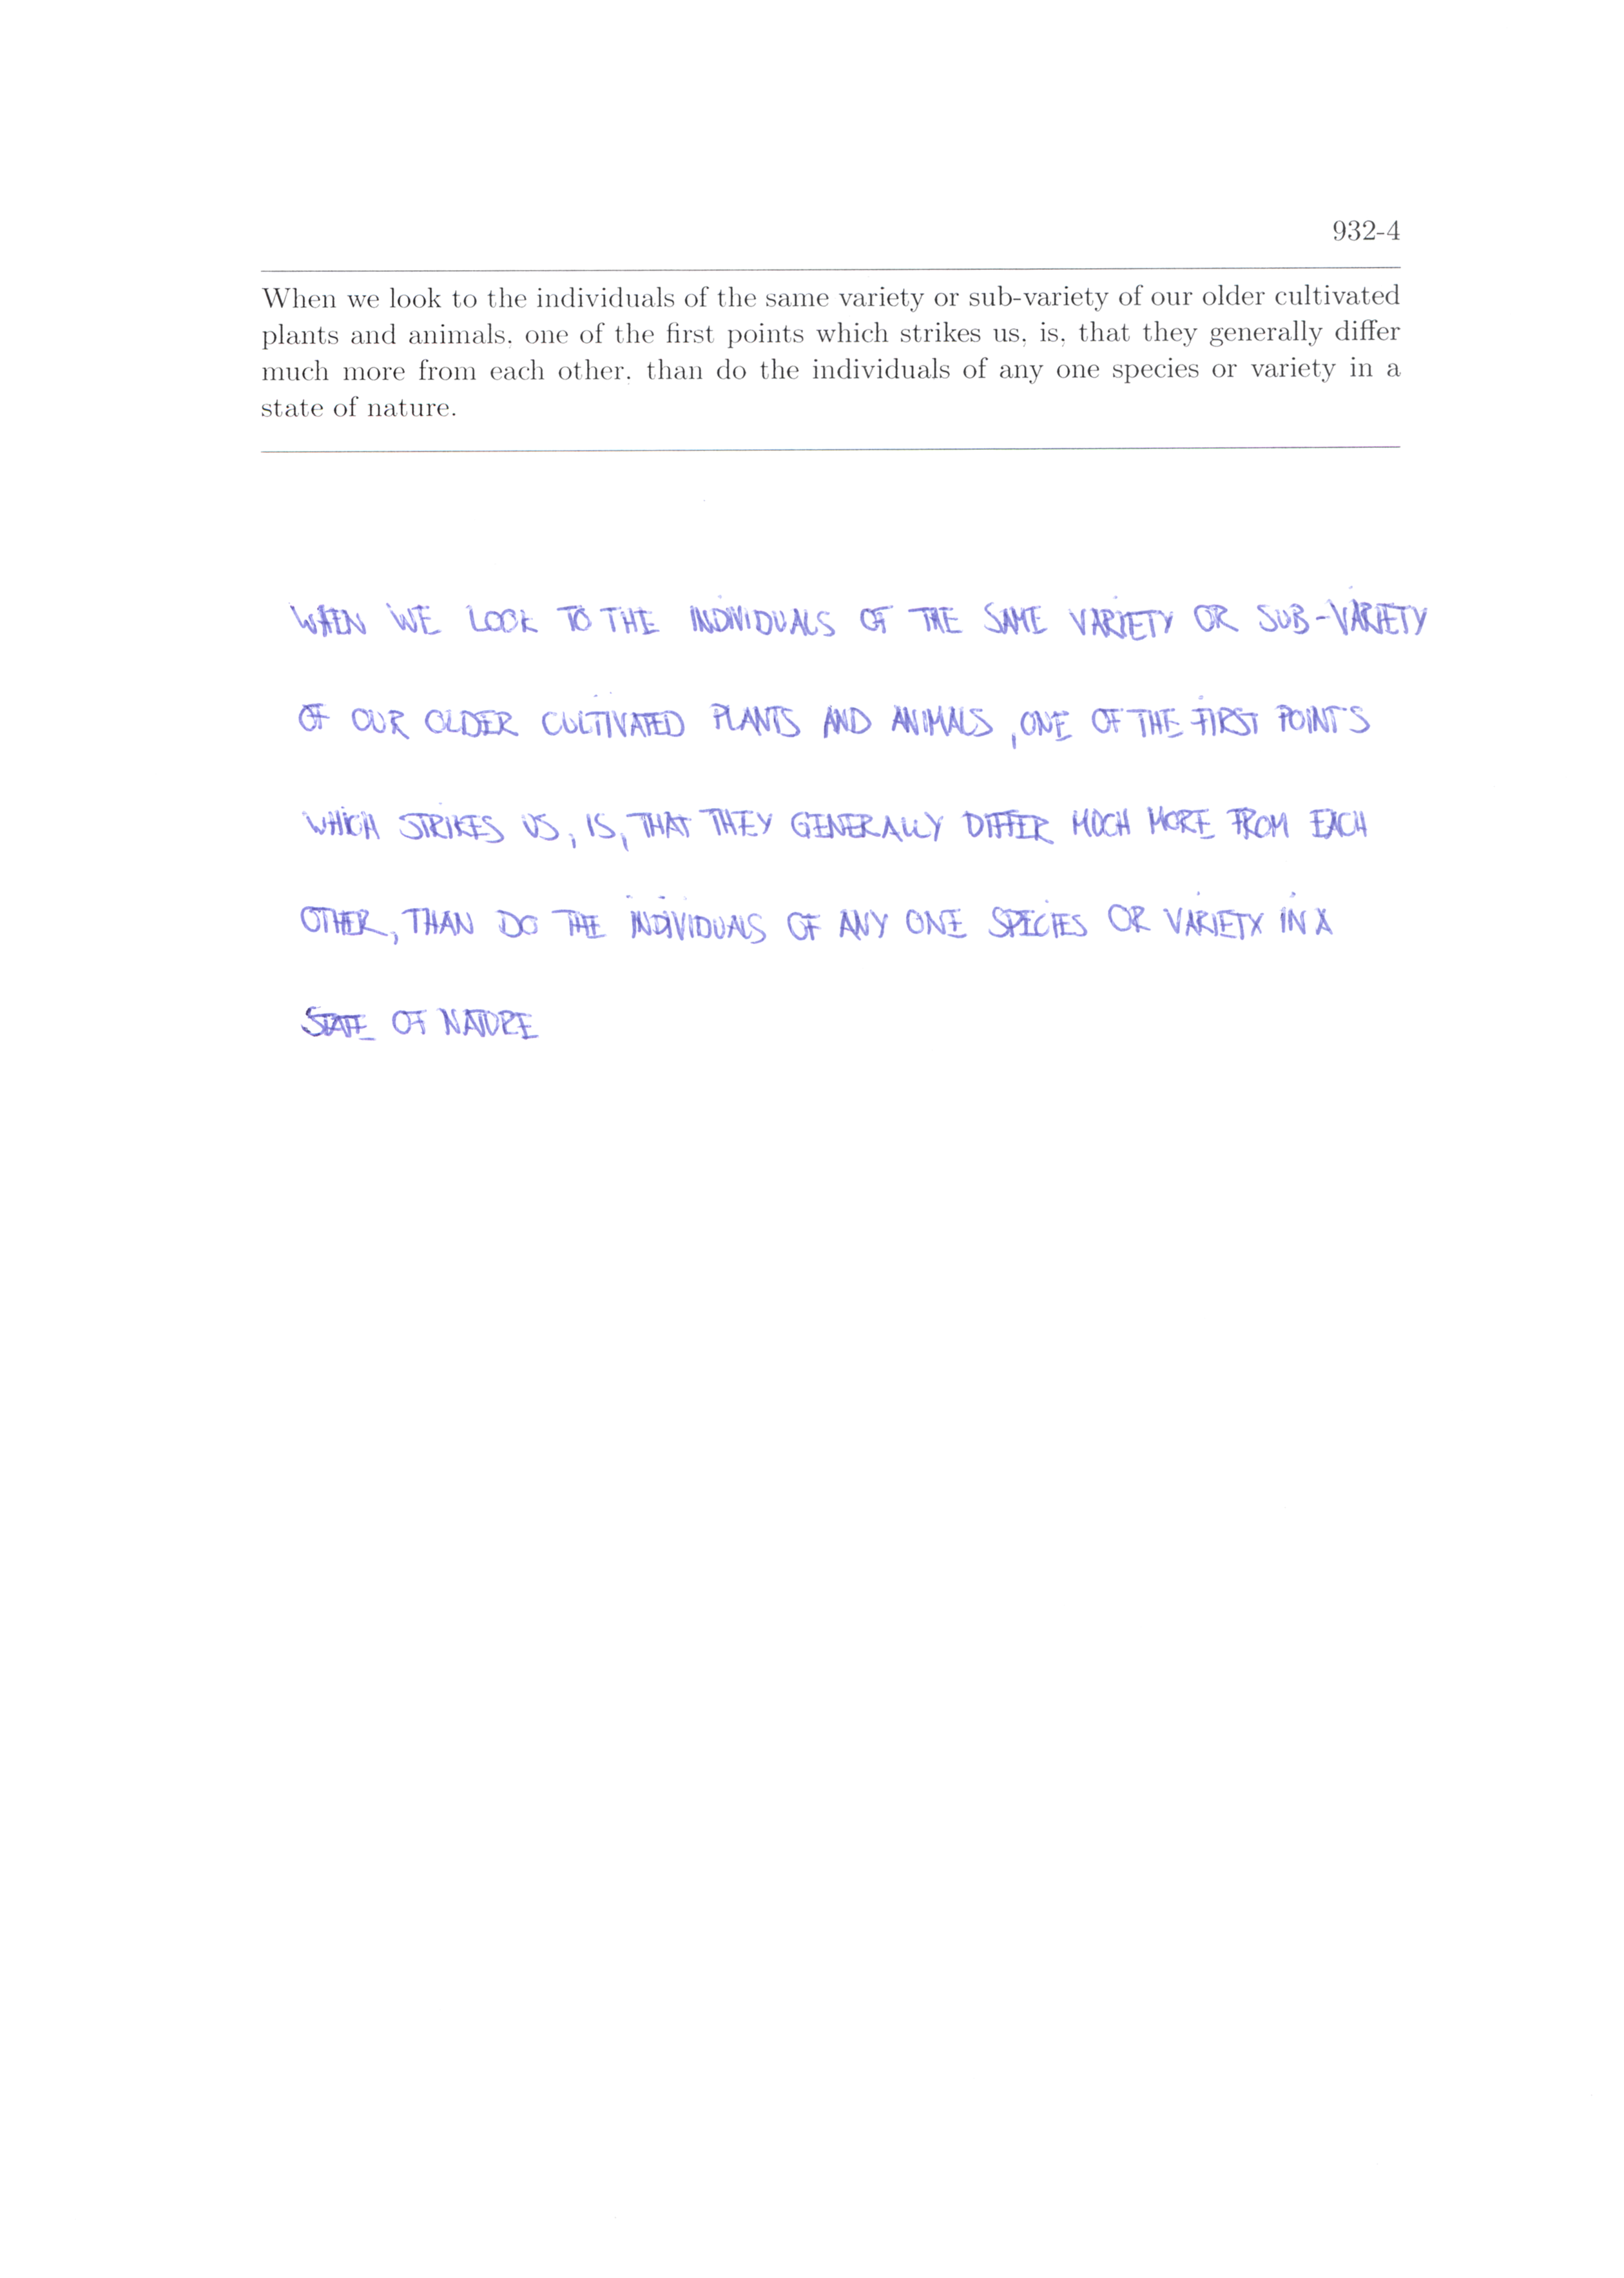 932-4
When we look to the individuals of the same variety or sub-variety of our older cultivated
plants and animals, one of the first points which strikes us, is, that they generally differ
much more from each other, than do the individuals of any one species or variety in a
state of nature.
WHEN WE LOOK TO THE INDIVIDUALS OF THE SAME VARIETY OR SUB-VARIETY
OF OUR OLDER CULTIVATED PLANTS AND ANIMALS, ONE OF THE FIRST POINTS
WHICH STRIKES US, IS, THAT THEY GENERALLY DIFFER MUCH MORE FROM EACH
OTHER, THAN DO THE INDIVIDUALS OF ANY ONE SPECIES OR VARIETY IN A
STATE OF NATURE